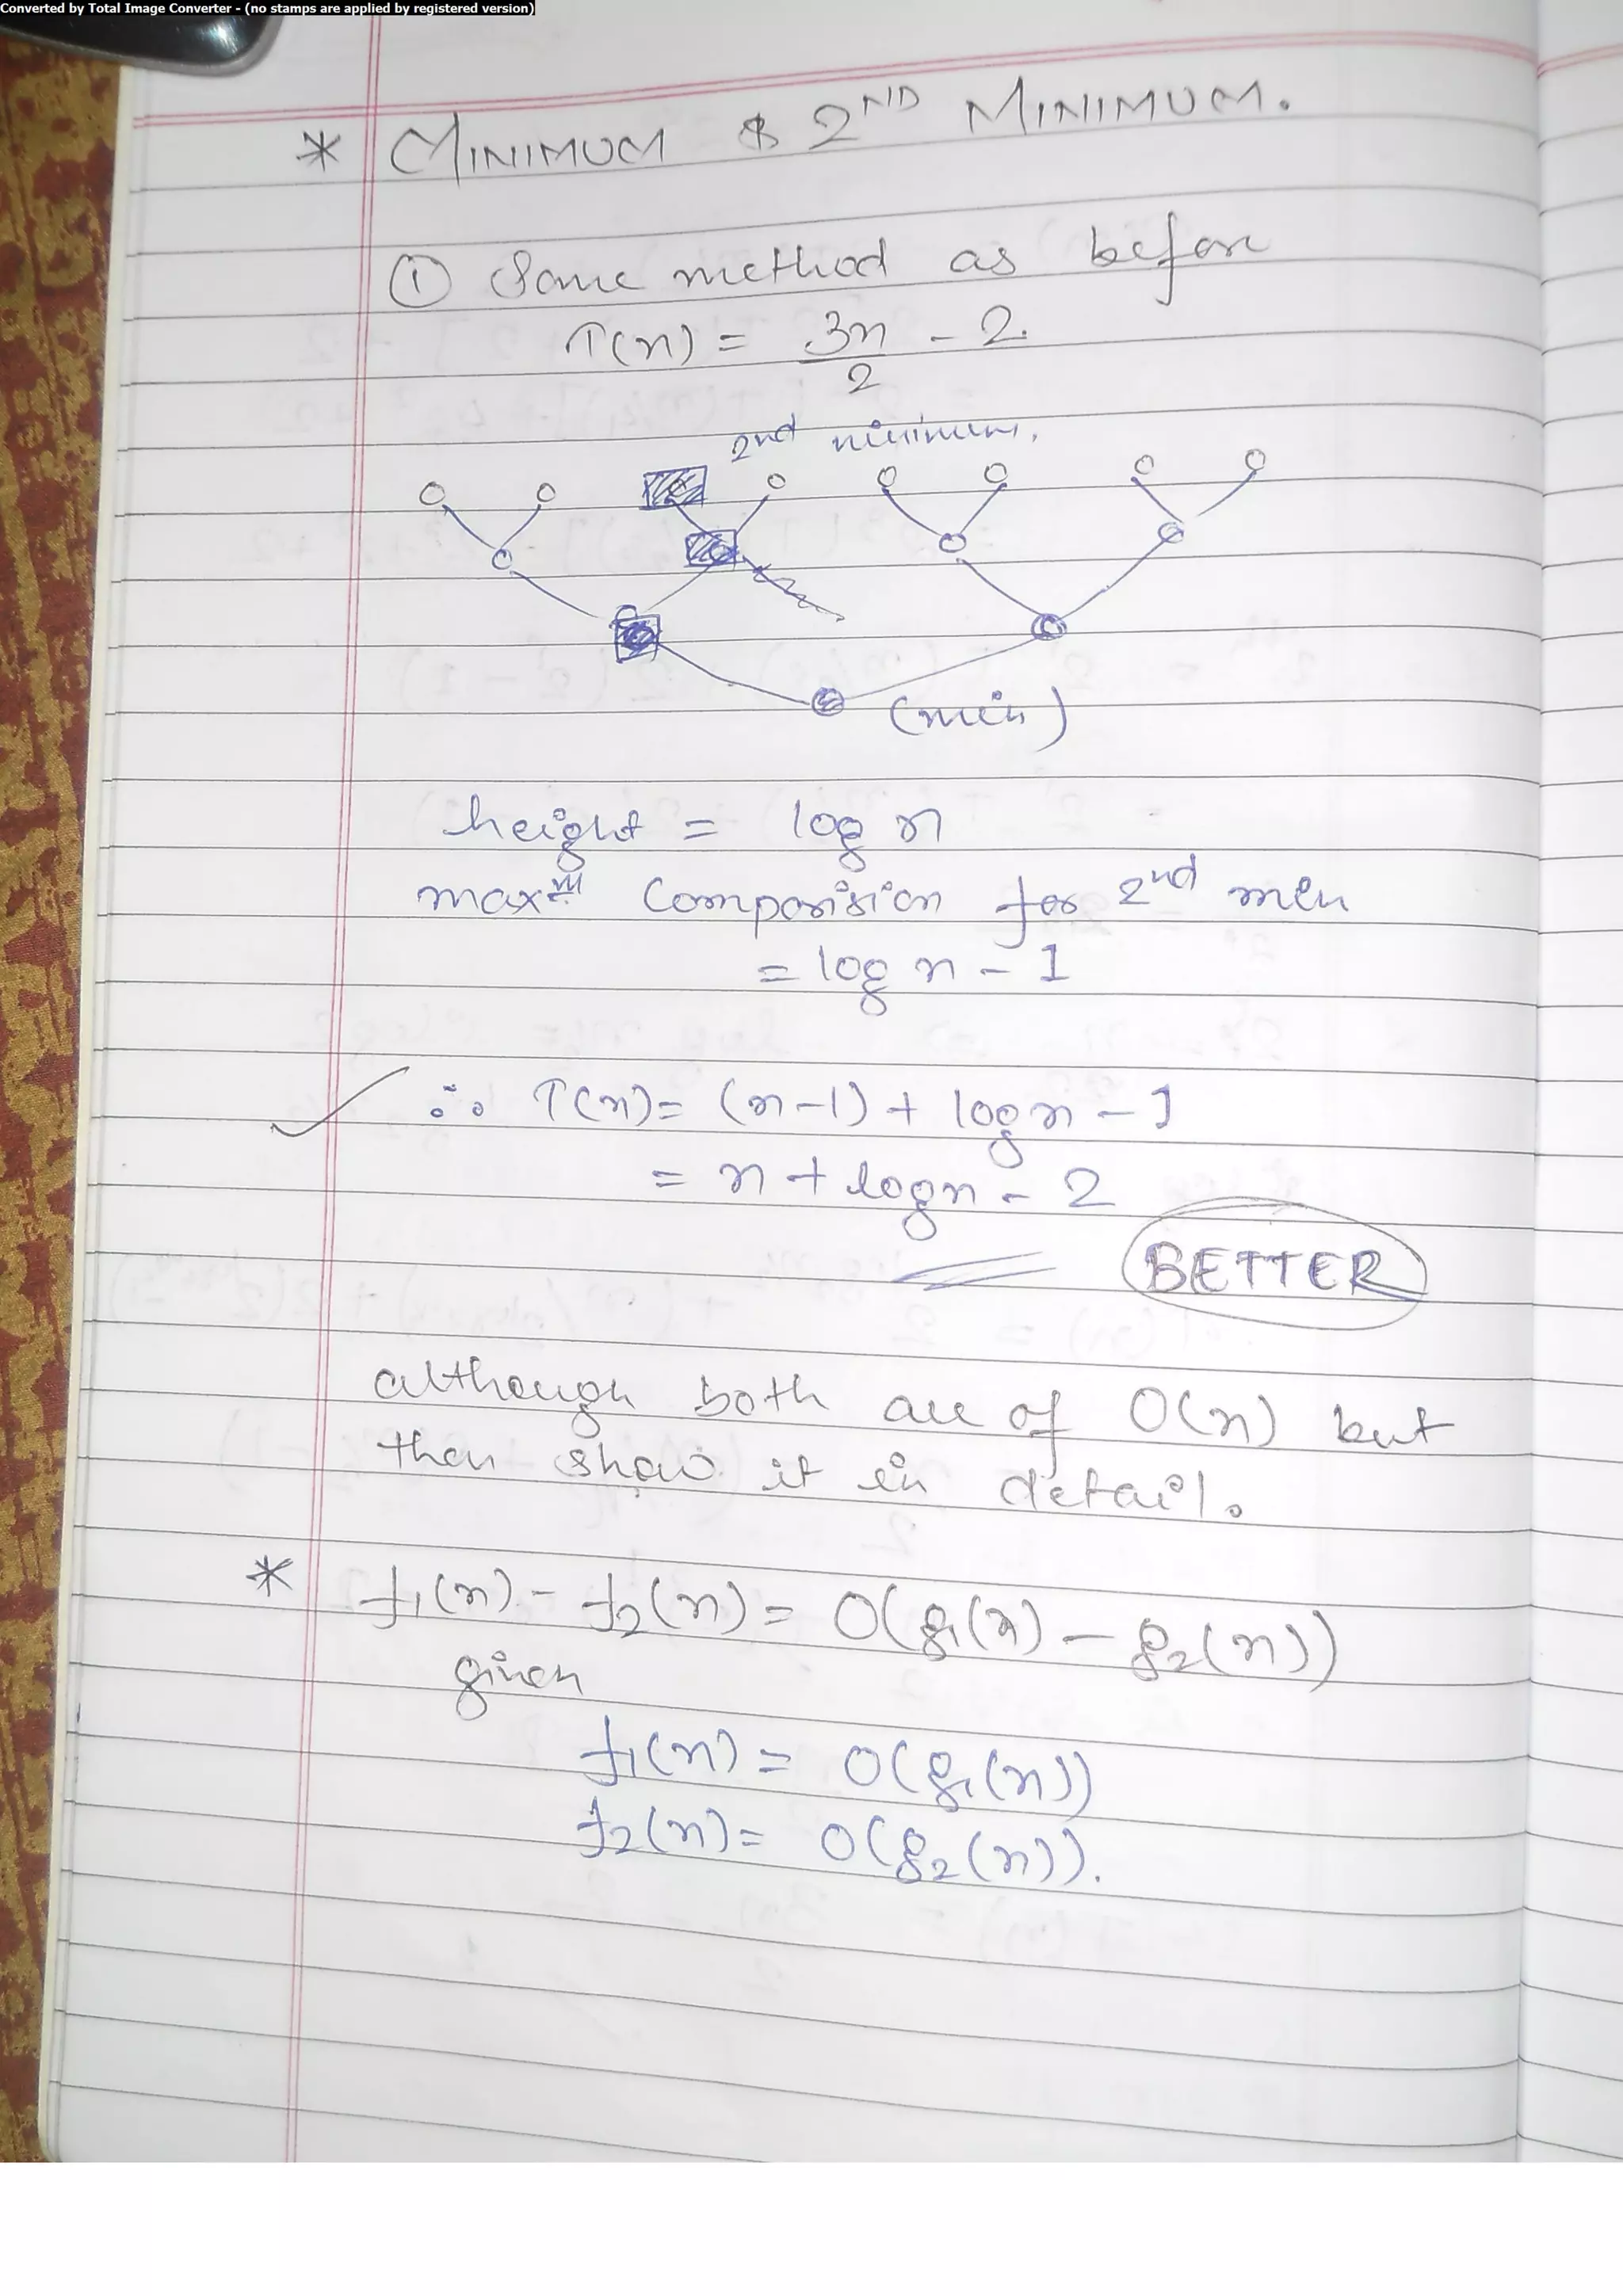 Converted by Total Image Converter - (no stamps are applied by registered version)
* MINIMUM & 2ND MINIMUM.
① Same method as before
T(n) = 3n/2 - 2.
2nd minimum.
(min)
height = log n
maxm Comparision for 2nd min
= log n - 1
∴ T(n) = (n-1) + log n - 1
= n + log n - 2
BETTER
although both are of O(n) but
then show it in detail.
* f1(n) - f2(n) = O(g1(n) - g2(n))
given
f1(n) = O(g1(n))
f2(n) = O(g2(n)).